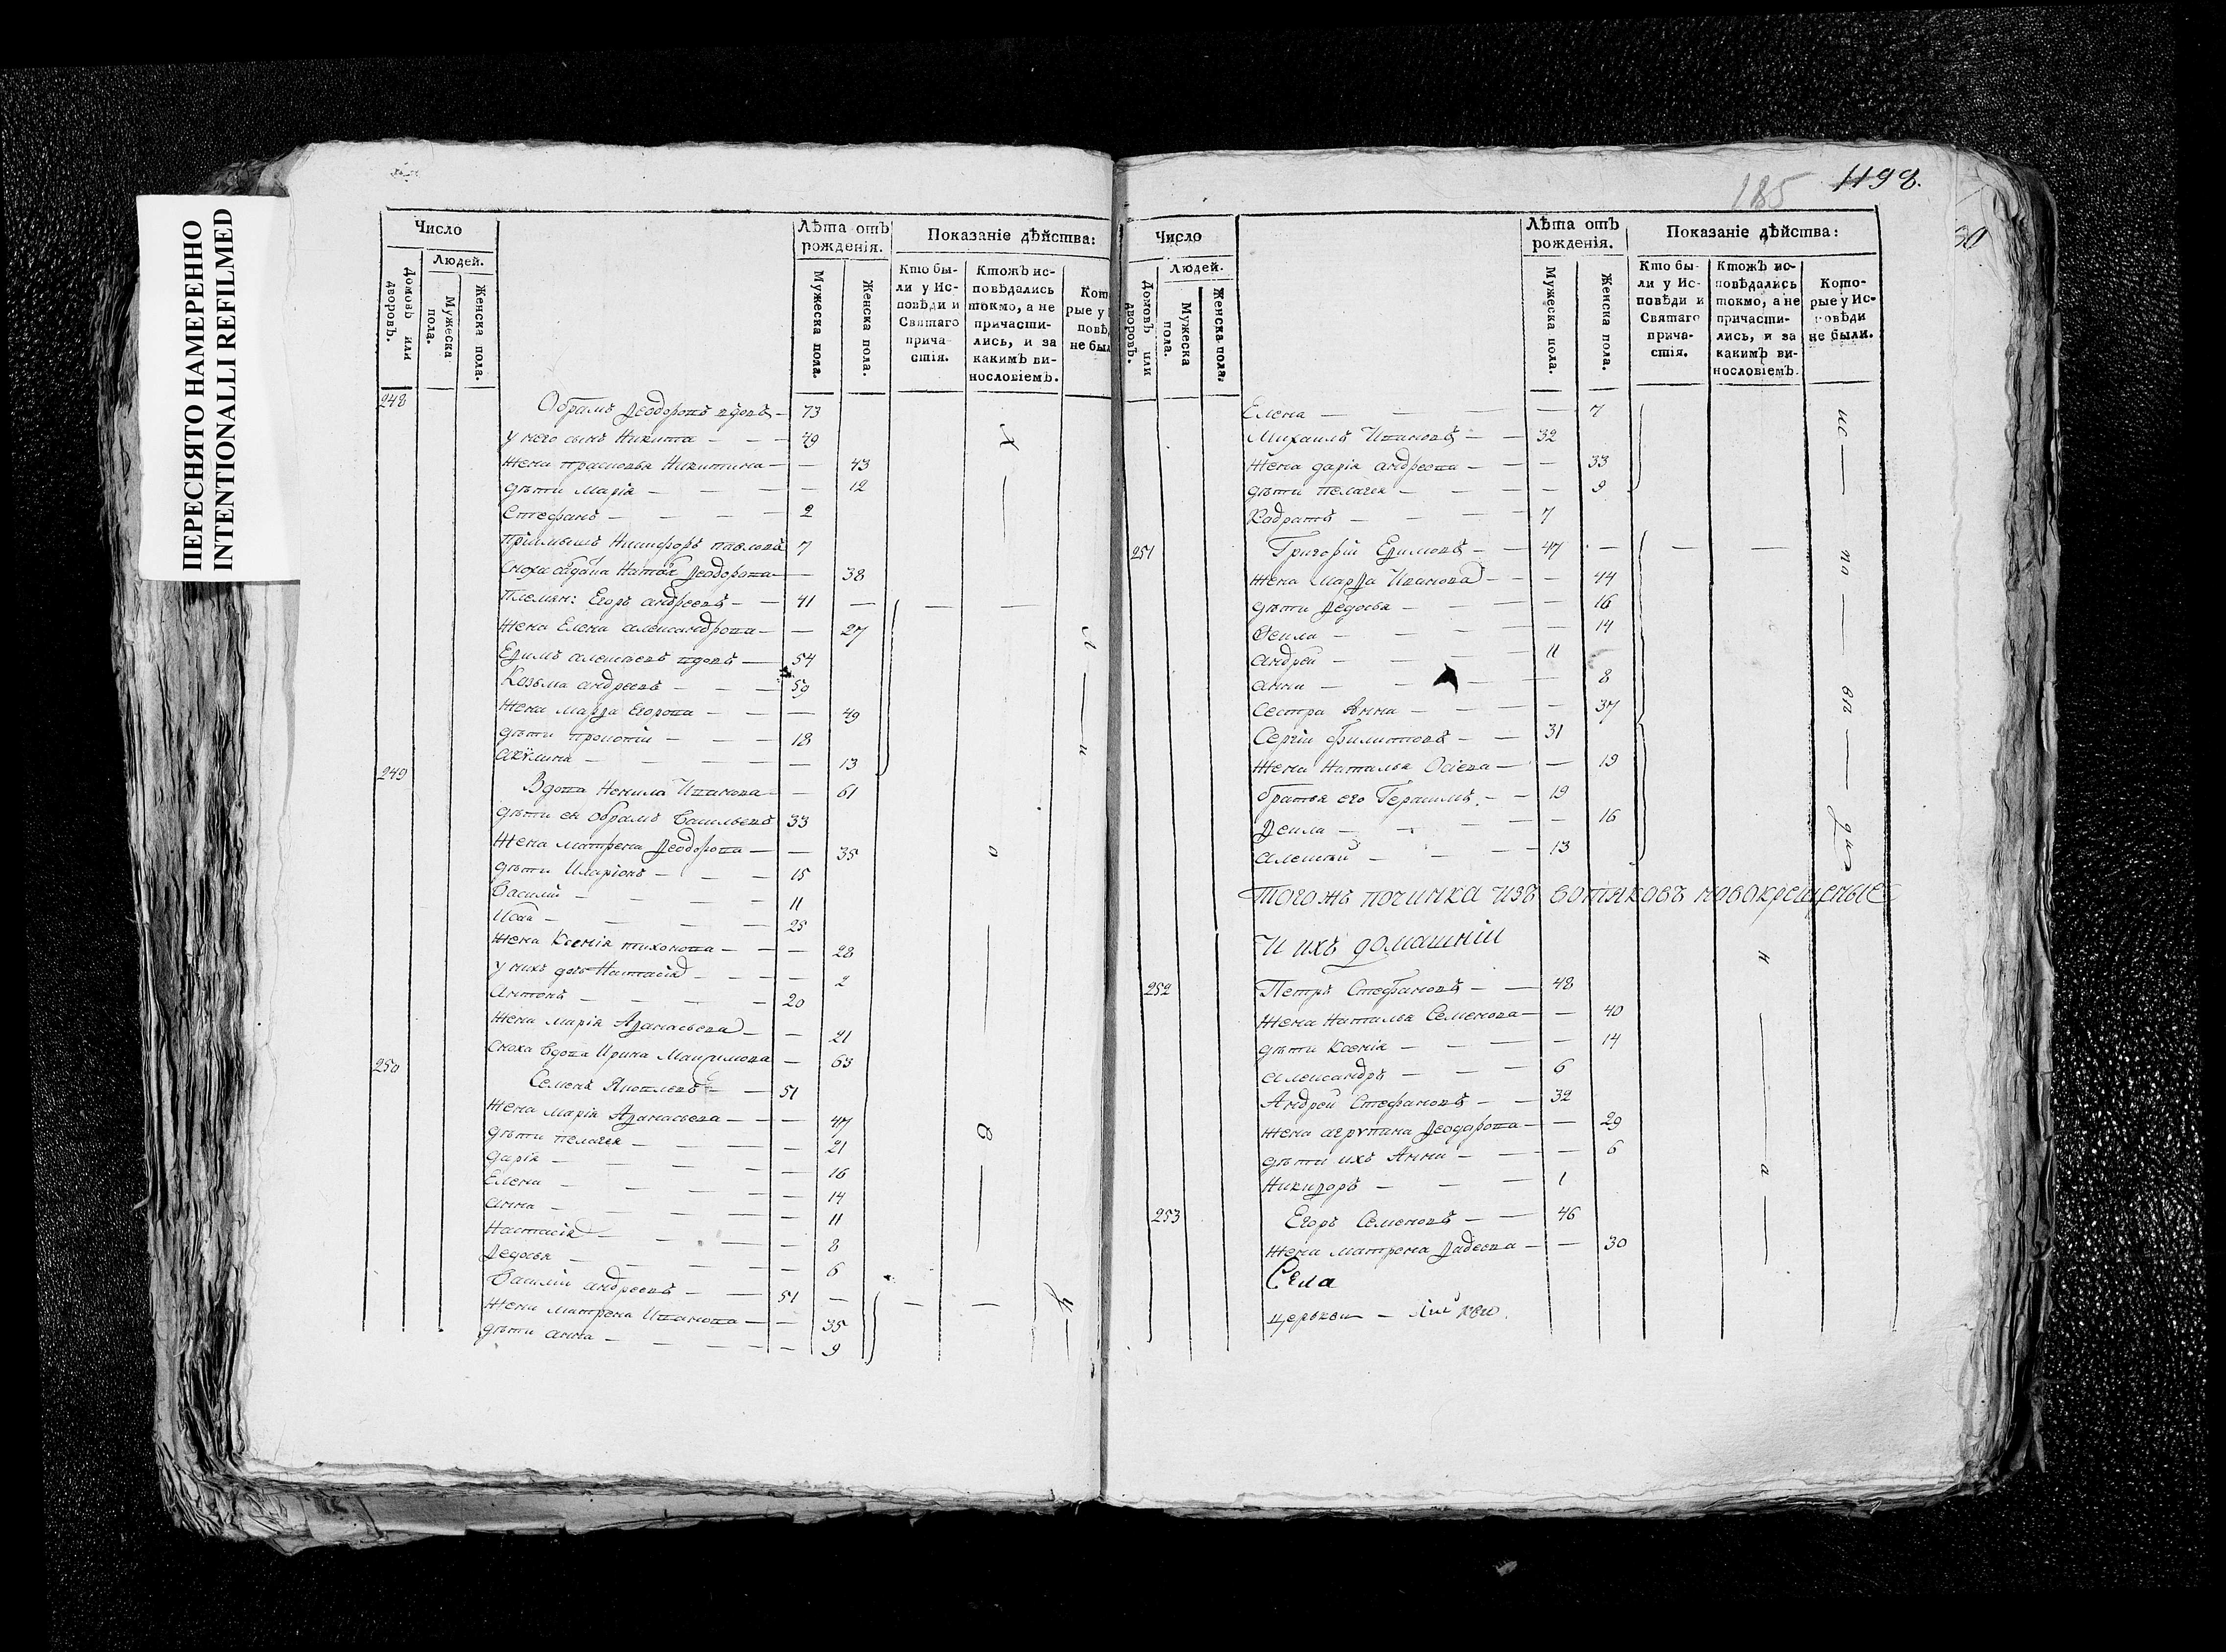 ПЕРЕСНЯТО НАМЕРЕННО
INTENTIONALLI REFILMED
Число
Людей.
Домовъ или дворовъ.
Мужеска пола.
Женска пола.
Лѣта отъ рожденія.
Мужеска пола.
Женска пола.
Показаніе дѣйства:
Кто бы-
ли у Ис-
повѣди и
Святаго
прича-
стія.
Ктожъ ис-
повѣдались
токмо, а не
причасти-
лись, и за
какимъ ви-
нословіемъ.
248 Обрамъ Ѳеодоровъ вдовъ 73
у него сынъ Никита 49
жена прасковья Никитина 43
дѣти Марія 12
Стефанъ 2
Пріимышъ Никифоръ павловъ 7
Сноха Наталья Ѳеодорова 38
Племян: Егоръ андреевъ 41
жена Елена александрова 27
Еѳимъ алексѣевъ вдовъ 54
Козьма андреевъ 59
жена марѳа Егорова 49
дѣти прокопій 18
акулина 13
249 Вдова Ненила Иванова 61
дѣти ея обрамъ Васильевъ 33
жена матрена Ѳеодорова 35
дѣти Иларіонъ 15
Василій 11
25
жена Ксенія тихонова 28
у нихъ дочь Настасія 2
антонъ 20
жена марія Аѳанасьева 21
сноха вдова Ирина Максимова 63
250 Семенъ Яковлевъ 51
жена марія Аѳанасьева 47
дѣти пелагея 21
дарія 16
Елена 14
анна 11
Настасія 8
Ѳедосья 6
Василій андреевъ 51
жена матрена Иванова 35
дѣти анна 9
185 1198.
Число
Людей.
Домовъ или дворовъ.
Мужеска пола.
Женска пола.
Лѣта отъ рожденія.
Мужеска пола.
Женска пола.
Показаніе дѣйства:
Кто бы-
ли у Ис-
повѣди и
Святаго
прича-
стія.
Ктожъ ис-
повѣдались
токмо, а не
причасти-
лись, и за
какимъ ви-
нословіемъ.
Кото-
рые у Ис-
повѣди
не были.
Елена 7
Михаилъ Ивановъ 32
жена дарія андреева 33
дѣти пелагея 9
Кодратъ 7
251 Григорій Еѳимовъ 47
жена Марѳа Иванова 44
дѣти Ѳедосья 16
Ѳекла 14
андрей 11
анна 8
сестра Анна 37
Сергій филиповъ 31
жена Наталья Осіева 19
братья его Герасимъ 19
Ѳекла 16
алексѣй 13
тогожъ починка изъ вотяковъ новокрещеные
И ихъ домашніи
252 Петръ Стефановъ 48
жена Наталья Семенова 40
дѣти Ксенія 14
александръ 6
Андрей Стефановъ 32
жена агрупина Ѳеодорова 29
дѣти ихъ Анна 6
Никиѳоръ 1
253 Егоръ Семеновъ 46
жена матрена Ѳадеева 30
Села
церькви